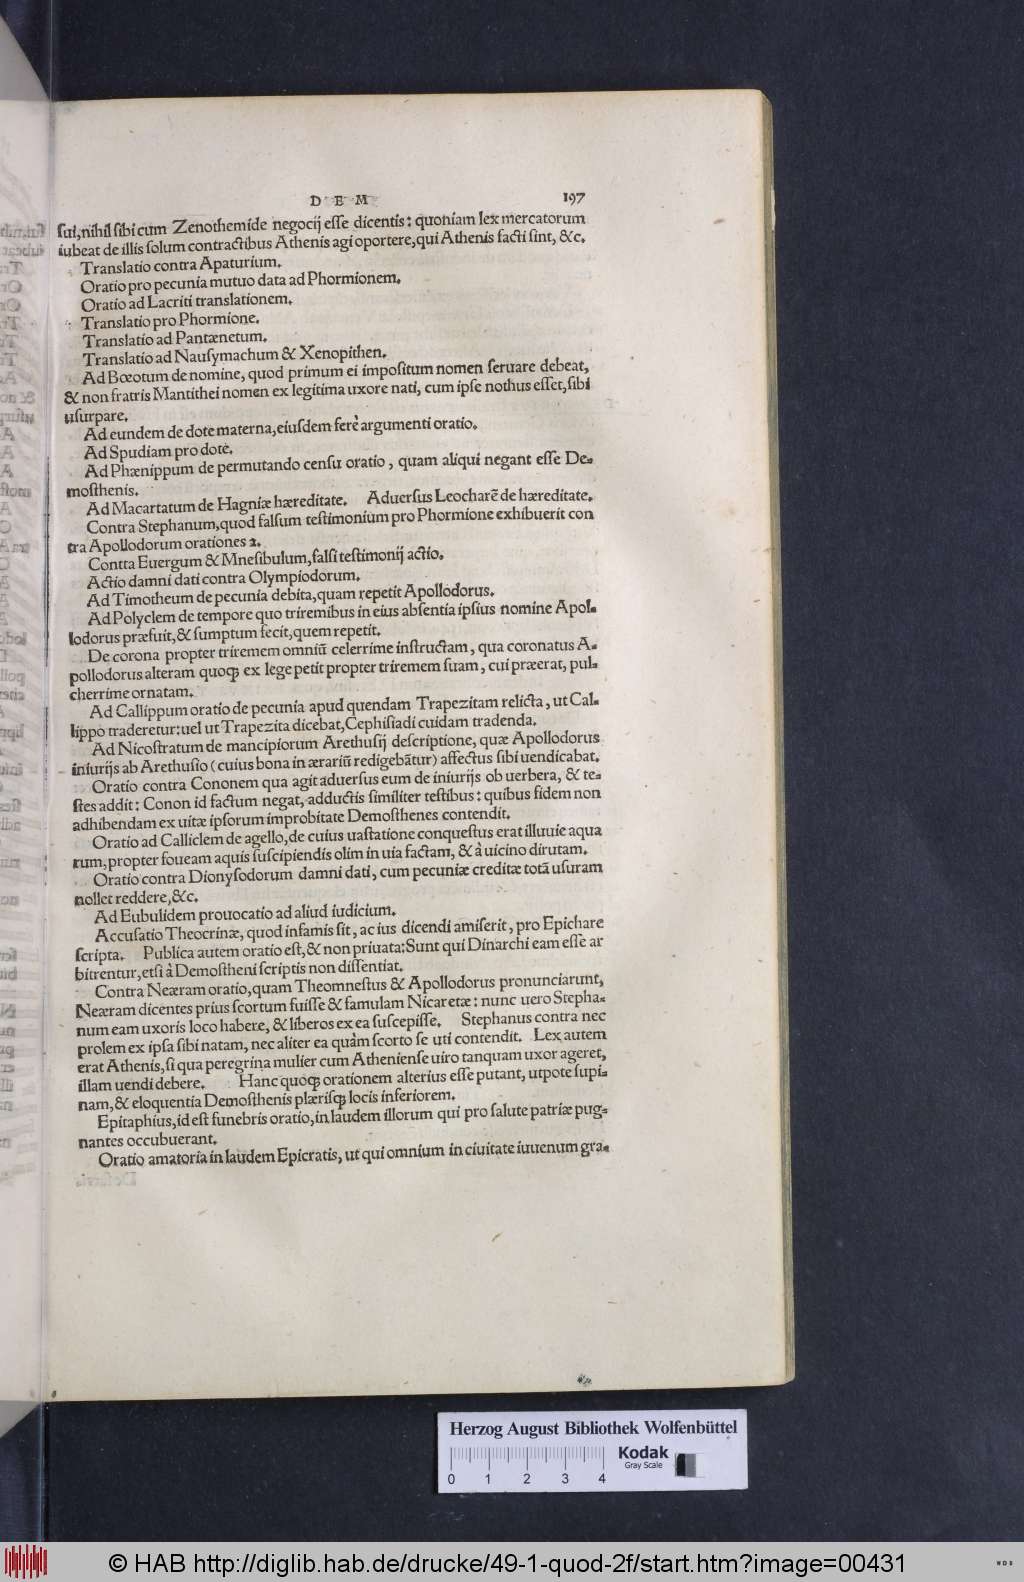 D E M 197
ſui, nihil ſibi cum Zenothemide negocij eſſe dicentis: quoniam lex mercatorum
iubeat de illis ſolum contractibus Athenis agi oportere, qui Athenis facti ſint, &c.
Translatio contra Apaturium.
Oratio pro pecunia mutuo data ad Phormionem.
Oratio ad Lacriti translationem.
Translatio pro Phormione.
Translatio ad Pantænetum.
Translatio ad Nauſymachum & Xenopithen.
Ad Bœotum de nomine, quod primum ei impoſitum nomen ſeruare debeat,
& non fratris Mantithei nomen ex legitima uxore nati, cum ipſe nothus eſſet, ſibi
uſurpare.
Ad eundem de dote materna, eiuſdem ferè argumenti oratio.
Ad Spudiam pro dote.
Ad Phænippum de permutando cenſu oratio, quam aliqui negant eſſe De-
moſthenis.
Ad Macartatum de Hagniæ hæreditate. Aduerſus Leocharē de hæreditate.
Contra Stephanum, quod falſum teſtimonium pro Phormione exhibuerit con
tra Apollodorum orationes 2.
Contra Euergum & Mneſibulum, falſi teſtimonij actio.
Actio damni dati contra Olympiodorum.
Ad Timotheum de pecunia debita, quam repetit Apollodorus.
Ad Polyclem de tempore quo triremibus in eius abſentia ipſius nomine Apol-
lodorus præfuit, & ſumptum fecit, quem repetit.
De corona propter triremem omniū celerrime inſtructam, qua coronatus A-
pollodorus alteram quoqꝫ ex lege petit propter triremem ſuam, cui præerat, pul-
cherrime ornatam.
Ad Callippum oratio de pecunia apud quendam Trapezitam relicta, ut Cal-
lippo traderetur: uel ut Trapezita dicebat, Cephiſiadi cuidam tradenda.
Ad Nicoſtratum de mancipiorum Arethuſij deſcriptione, quæ Apollodorus
iniurijs ab Arethuſio (cuius bona in ærariū redigebātur) affectus ſibi uendicabat.
Oratio contra Cononem qua agit aduerſus eum de iniurijs ob uerbera, & te-
ſtes addit: Conon id factum negat, adductis ſimiliter teſtibus: quibus fidem non
adhibendam ex uitæ ipſorum improbitate Demoſthenes contendit.
Oratio ad Calliclem de agello, de cuius uaſtatione conqueſtus erat illuuie aqua
rum, propter foueam aquis ſuſcipiendis olim in uia factam, & à uicino dirutam.
Oratio contra Dionyſodorum damni dati, cum pecuniæ creditæ totā uſuram
nollet reddere, &c.
Ad Eubulidem prouocatio ad aliud iudicium.
Accuſatio Theocrinæ, quod infamis ſit, ac ius dicendi amiſerit, pro Epichare
ſcripta. Publica autem oratio eſt, & non priuata: Sunt qui Dinarchi eam eſſe ar
bitrentur, etſi à Demoſtheni ſcriptis non diſſentiat.
Contra Neæram oratio, quam Theomneſtus & Apollodorus pronunciarunt,
Neæram dicentes prius ſcortum fuiſſe & famulam Nicaretæ: nunc uero Stepha-
num eam uxoris loco habere, & liberos ex ea ſuſcepiſſe. Stephanus contra nec
prolem ex ipſa ſibi natam, nec aliter ea quàm ſcorto ſe uti contendit. Lex autem
erat Athenis, ſi qua peregrina mulier cum Athenienſe uiro tanquam uxor ageret,
illam uendi debere. Hanc quoqꝫ orationem alterius eſſe putant, utpote ſupi-
nam, & eloquentia Demoſthenis plæriſqꝫ locis inferiorem.
Epitaphius, id eſt funebris oratio, in laudem illorum qui pro ſalute patriæ pug-
nantes occubuerant.
Oratio amatoria in laudem Epicratis, ut qui omnium in ciuitate iuuenum gra-
Herzog August Bibliothek Wolfenbüttel
0 1 2 3 4
Kodak
Gray Scale
© HAB http://diglib.hab.de/drucke/49-1-quod-2f/start.htm?image=00431